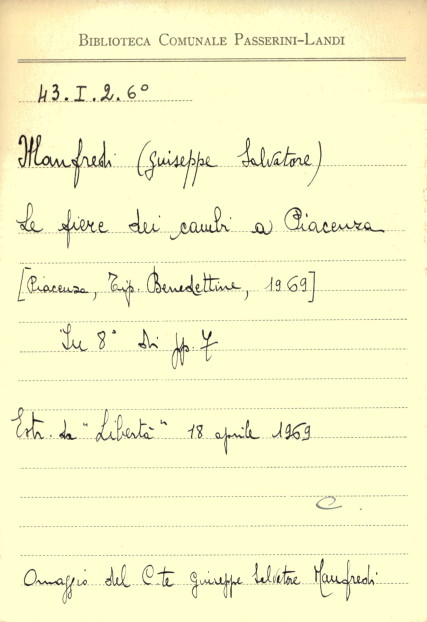 BIBLIOTECA COMUNALE PASSERINI-LANDI
43.I.2.6°
Manfredi (Giuseppe Salvatore)
Le fiere dei cambi a Piacenza
[Piacenza, Tip. Benedettine, 1969]
In 8° di pp. 7
Estr. da "Libertà" 18 aprile 1969
C.
Omaggio del C.te Giuseppe Salvatore Manfredi